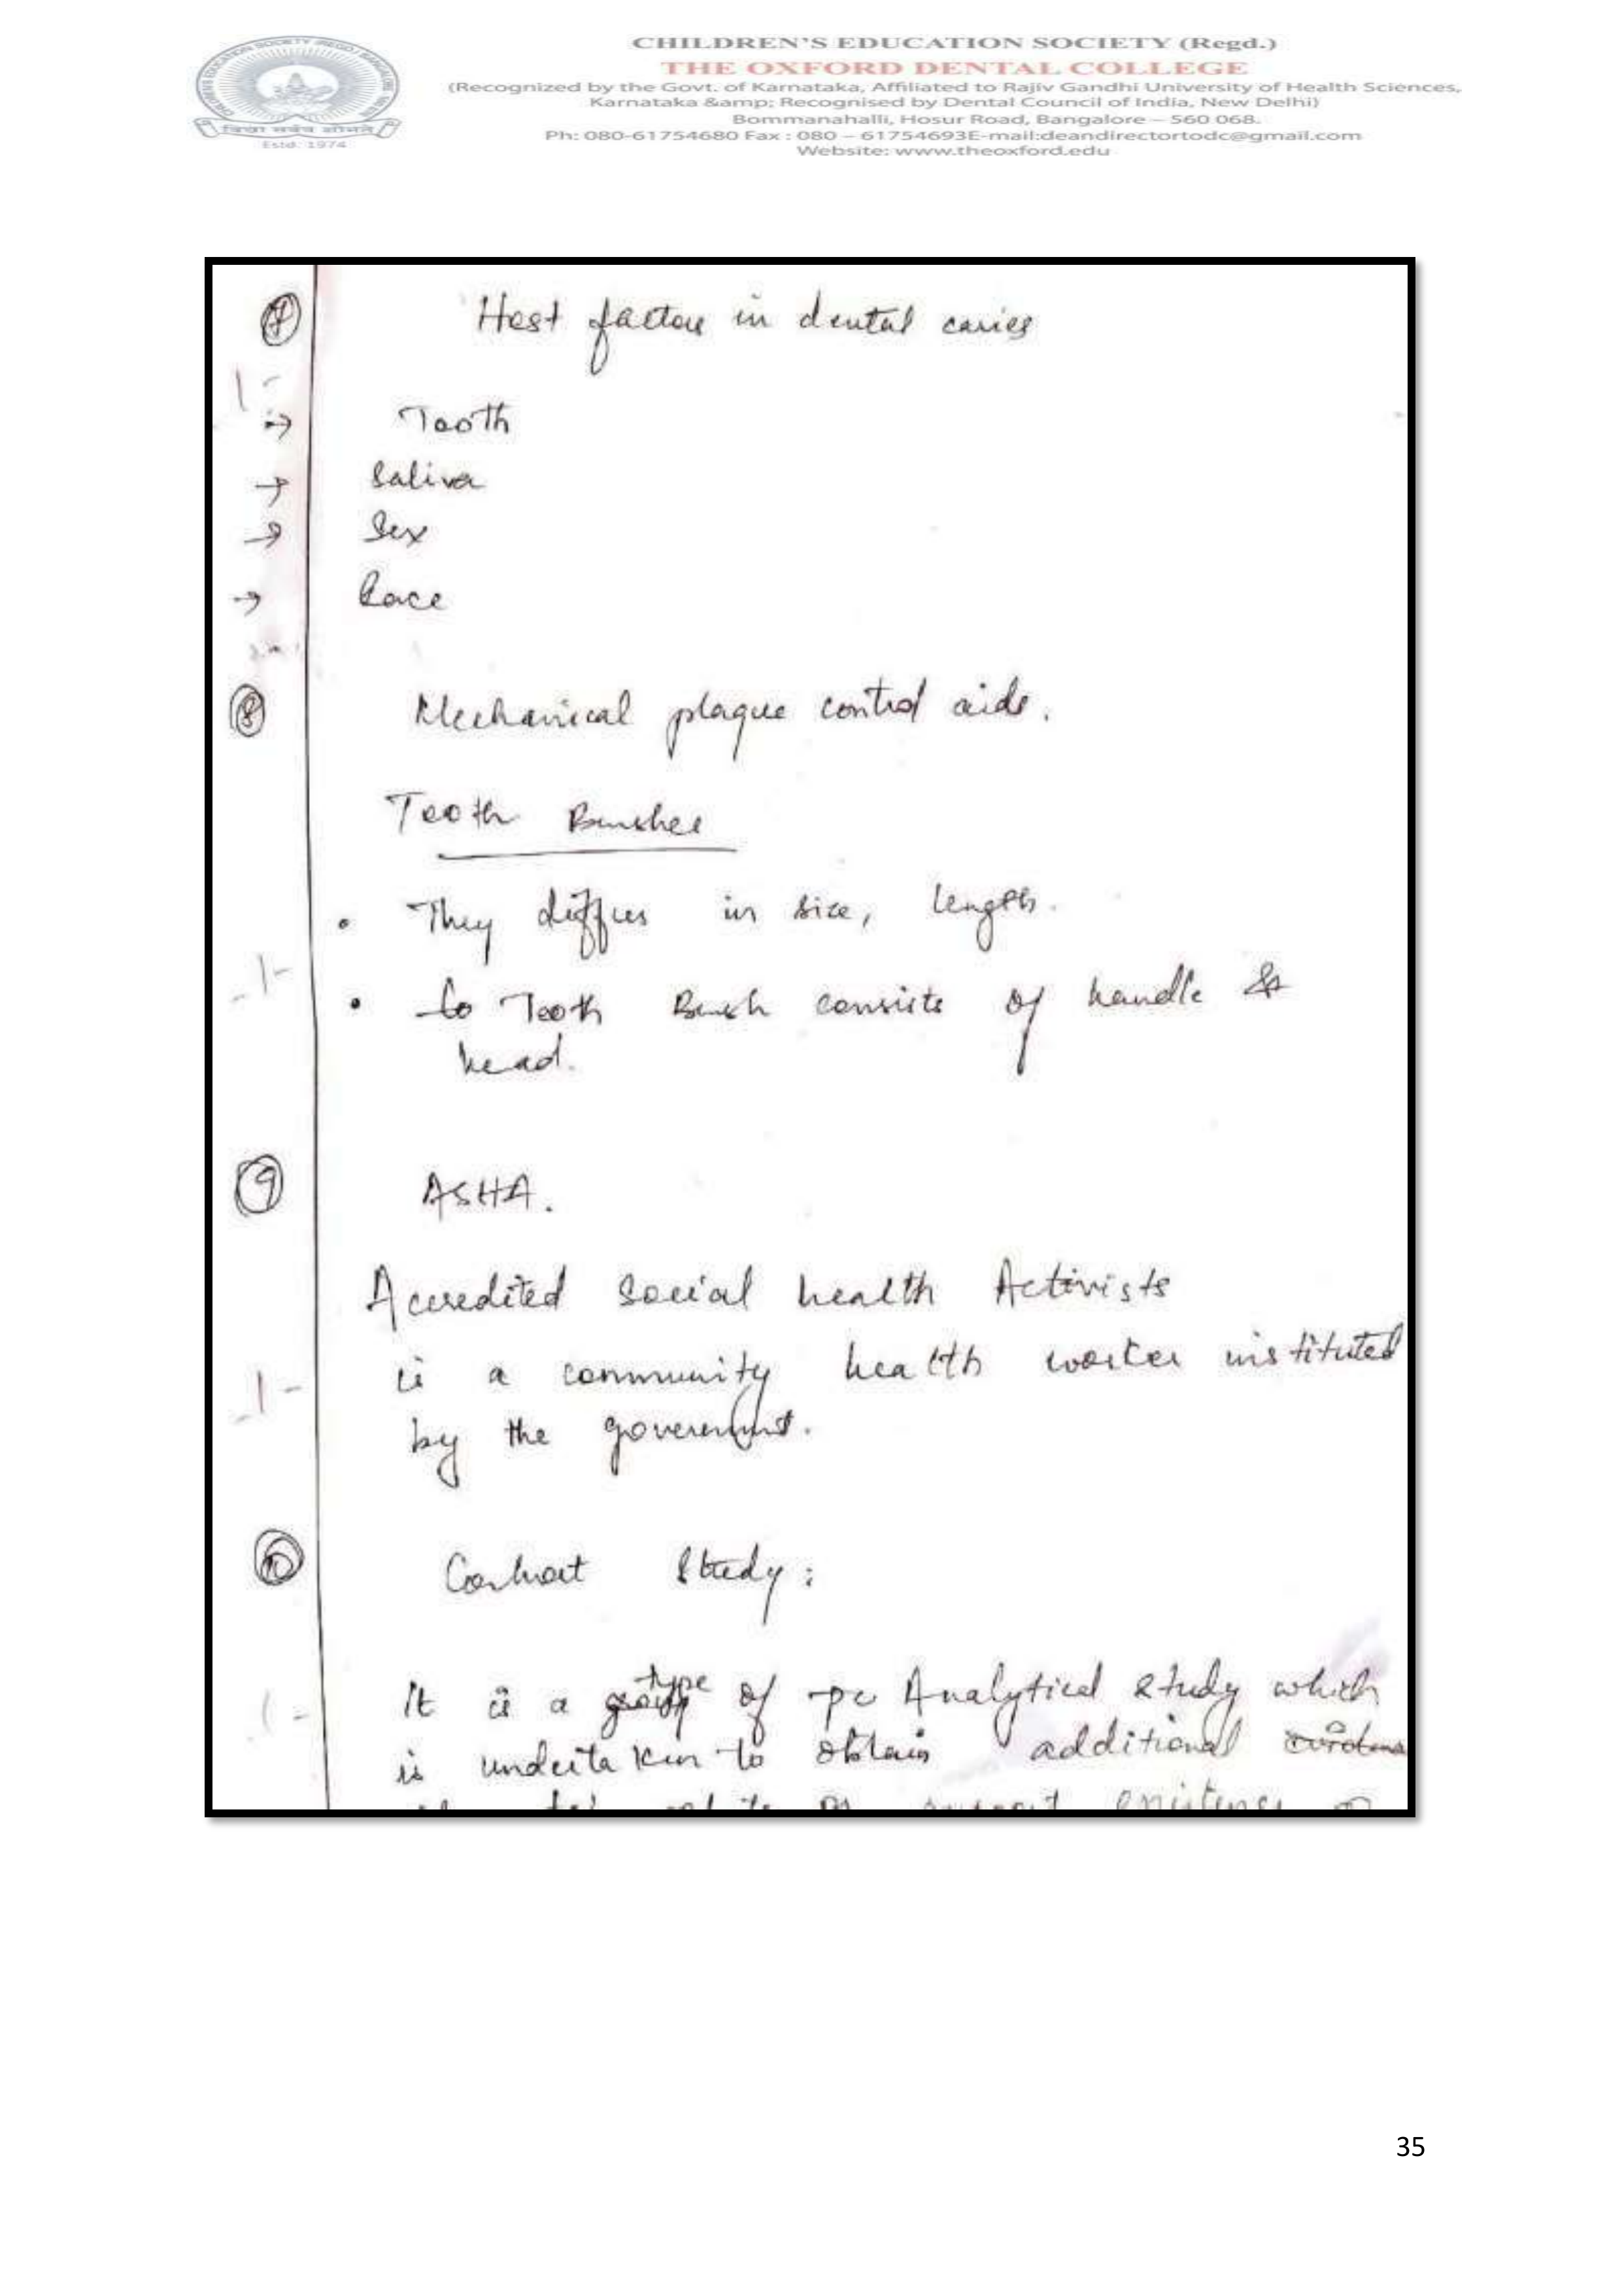 CHILDREN'S EDUCATION SOCIETY (Regd.)
THE OXFORD DENTAL COLLEGE
(Recognized by the Govt. of Karnataka, Affiliated to Rajiv Gandhi University of Health Sciences,
Karnataka &amp; Recognised by Dental Council of India, New Delhi)
Bommanahalli, Hosur Road, Bangalore – 560 068.
Ph: 080-61754680 Fax : 080 – 61754693E-mail:deandirectortodc@gmail.com
Website: www.theoxford.edu
Estd. 1974
7 Host factors in dental caries
1-
→ Tooth
→ Saliva
→ Sex
→ Race
8 Mechanical plaque control aids.
Tooth Brushes
• They differs in size, length.
-1-
• Tooth Brush consists of handle &
head.
9 ASHA.
Accredited Social health Activists
is a community health worker instituted
-1-
by the government.
10 Cohort Study:
It is a type of Analytical study which
1-
is undertaken to obtain additional
35